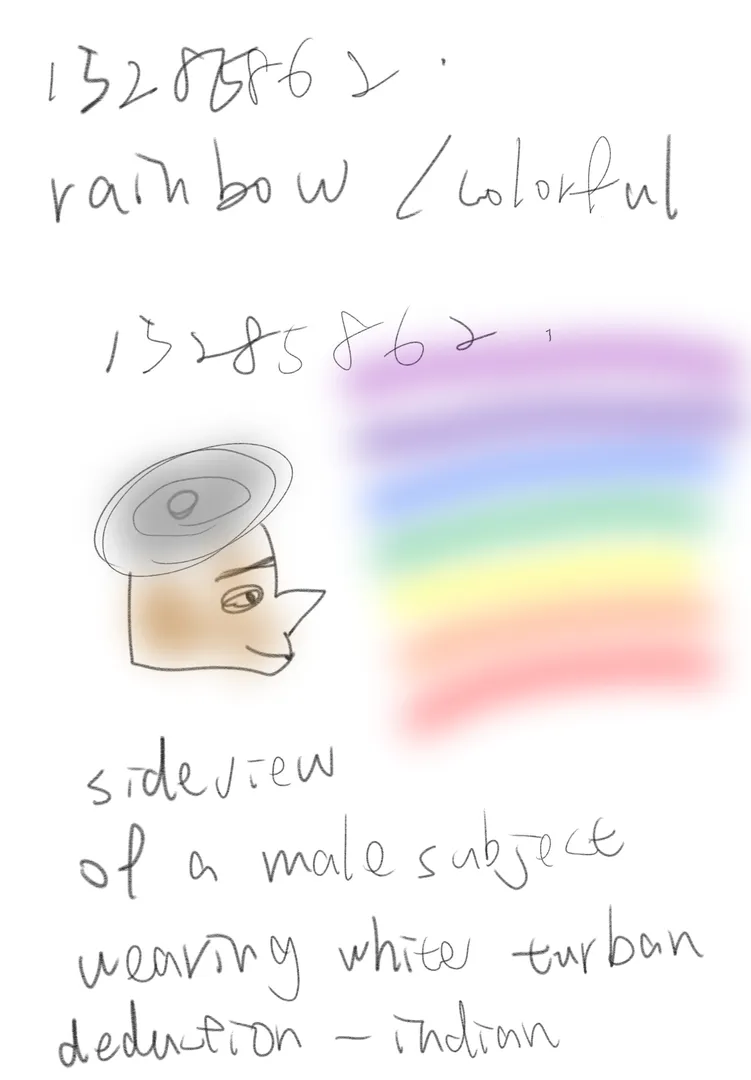 15285862.
rainbow / colorful
15285862.
sideview
of a male subject
wearing white turban
deduction - indian